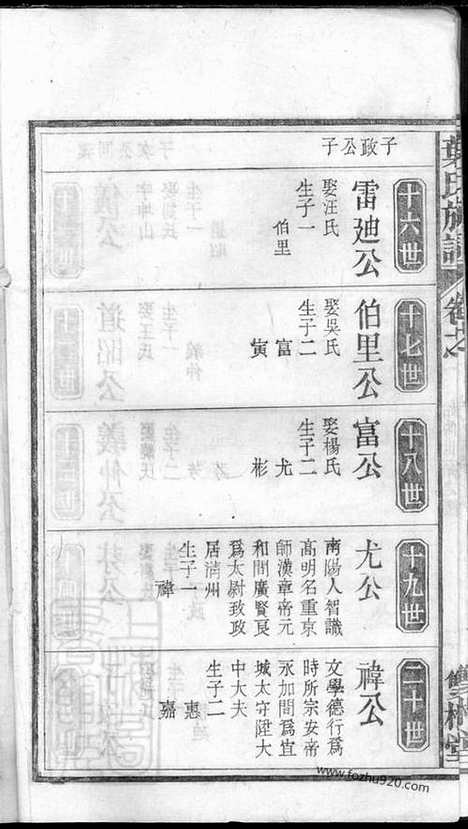 氏族譜
卷之
子政公子
十六世
雷廸公
娶汪氏
生子一
伯里
十七世
伯里公
娶吳氏
生子二
富
寅
十八世
富公
娶楊氏
生子二
尤
彬
十九世
尤公
南陽人智識
高明名重京
師漢章帝元
和間廣賢良
爲太尉致政
居清州
生子一
禕
二十世
禕公
文學德行爲
時所宗安帝
永加間爲宜
城太守陞大
中大夫
生子二
惠
嘉
www.fozhu920.com